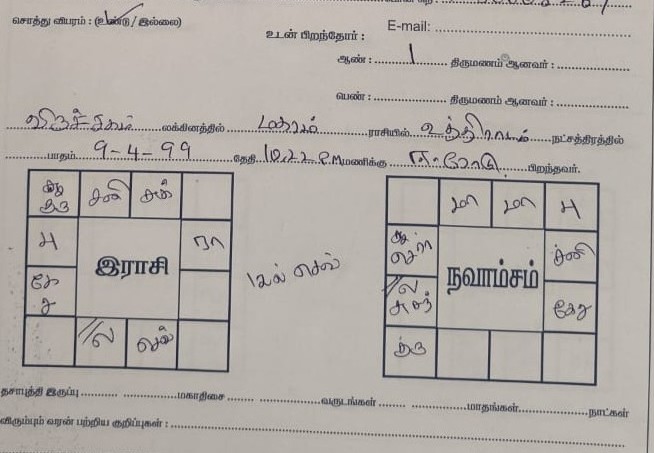 சொத்து விபரம் : (உண்டு / இல்லை)
E-mail:
உடன் பிறந்தோர் :
ஆண் : 1 திருமணம் ஆனவர் :
பெண் : திருமணம் ஆனவர் :
விருச்சிகம் லக்கினத்தில் மகரம் ராசியில் உத்திராடம் நட்சத்திரத்தில்
பாதம் 9-4-99 தேதி 10.22 P.M மணிக்கு ஈரோடு பிறந்தவர்.
குரு சனி சுக்
பு ரா
இராசி
கே
ச
//ல செவ்
மா மா பு
சனி
நவாம்சம்
//ல
கேது
குரு
தசாபுத்தி இருப்பு மகாதிசை வருடங்கள் மாதங்கள் நாட்கள்
விரும்பும் வரன் பற்றிய குறிப்புகள் :